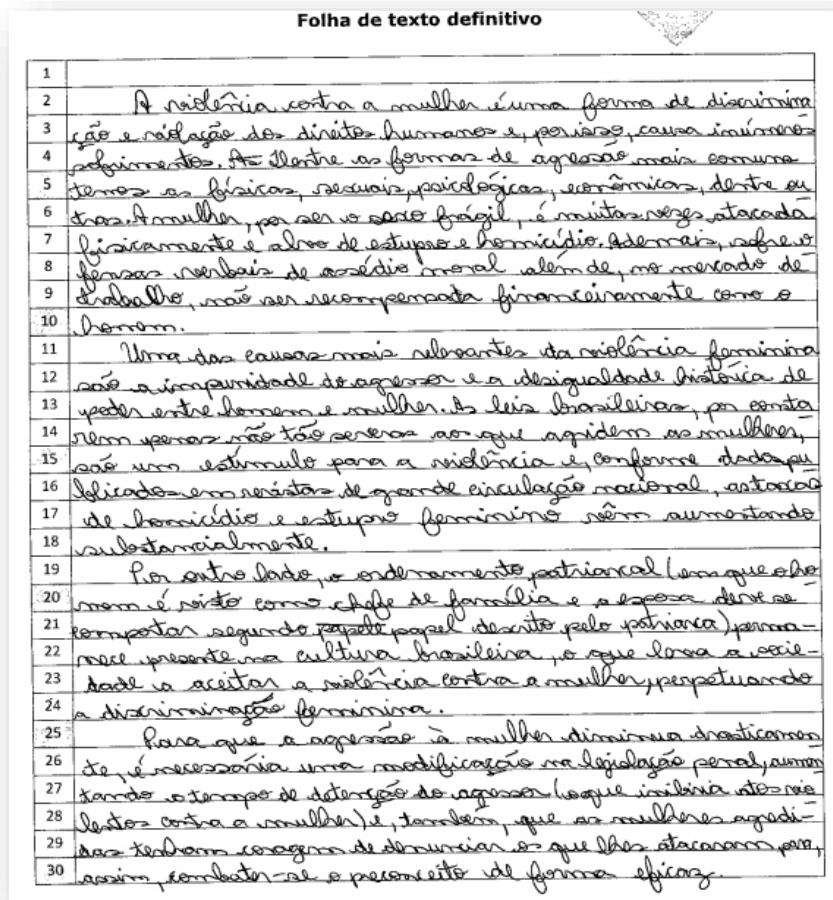 Folha de texto definitivo
1
2 A violência contra a mulher é uma forma de discrimina
3 ção e violação dos direitos humanos e, por isso, causa inúmeros
4 sofrimentos. As Dentre as formas de agressão mais comuns
5 temos as físicas, sexuais, psicológicas, econômicas, dentre ou
6 tras. A mulher, por ser o sexo frágil, é muitas vezes atacada
7 fisicamente e alvo de estupro e homicídio. Ademais, sofre o
8 fensas verbais de assédio moral além de, no mercado de
9 trabalho, não ser recompensata financeiramente como o
10 homem.
11 Uma das causas mais relevantes da violência feminina
12 são a impunidade do agressor e a desigualdade histórica de
13 poder entre homem e mulher. As leis brasileiras, por consta
14 rem penas não tão severas aos que agridem as mulheres,
15 são um estímulo para a violência e, conforme dados pu
16 blicados em revistas de grande circulação nacional, as taxas
17 de homicídio e estupro feminino vêm aumentando
18 substancialmente.
19 Por outro lado, o ordenamento patriarcal (em que o ho
20 mem é visto como chefe de família e a esposa deve se
21 comportar segundo papele papel descrito pelo patriarca) perma-
22 nece presente na cultura brasileira, o que leva a socie-
23 dade a aceitar a violência contra a mulher, perpetuando
24 a discriminação feminina.
25 Para que a agressão à mulher diminua drasticamen
26 te, é necessária uma modificação na legislação penal, aumen
27 tando o tempo de detenção do agressor (o que inibiria atos vio
28 lentos contra a mulher) e, também, que as mulheres agredi-
29 das tenham coragem de denunciar os que lhes atacaram para,
30 assim, combater-se o preconceito de forma eficaz.